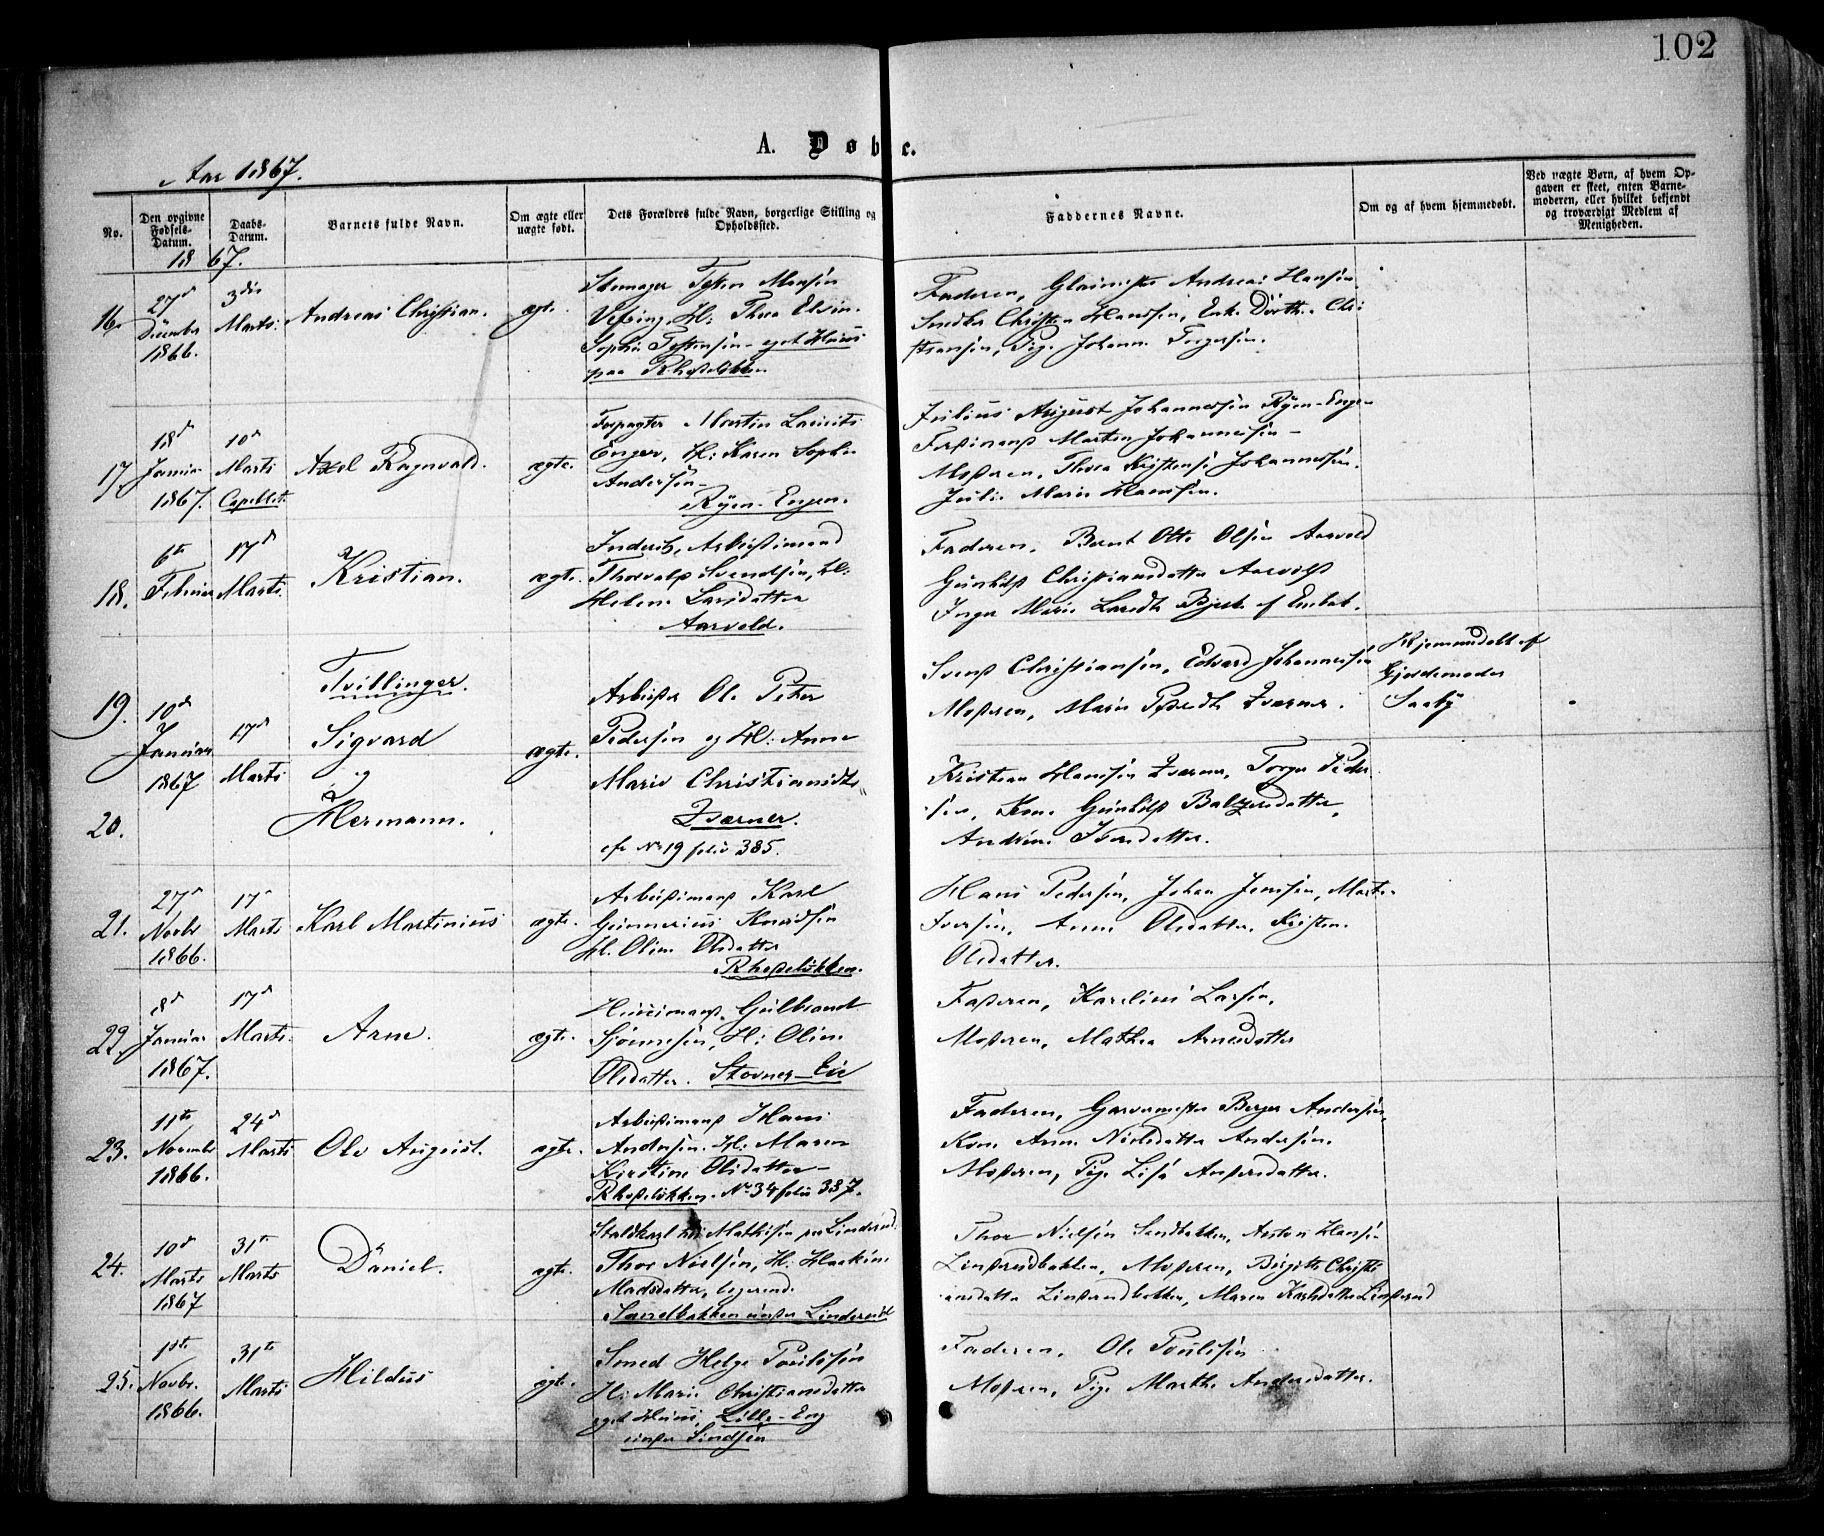 102
A. Døbe.
Aar 1867.
No.
Den opgivne Fødsels-Datum.
Daabs-Datum.
Barnets fulde Navn.
Om ægte eller uægte født.
Dets Forældres fulde Navn, borgerlige Stilling og Opholdssted.
Faddernes Navne.
Om og af hvem hjemmedøbt.
Ved uægte Børn, af hvem Opgaven er skeet, enten Barnemoderen, eller hvilket bekjendt og troværdigt Medlem af Menigheden.
1867.
16.
27d
1866.
3die
Marts.
Andreas Christian.
ægte.
Faderen, Andreas Hansen
Christen Hanssen, Enke Dorthe Chri
stiansen, Pige Johanne Torgersen.
17.
18d
Januar
1867.
10d
Marts
Axel Ragnvald.
ægte.
Forpagter Martin
Enger, H: Karen Sophie
Andersen
Ryen-Engen.
Julius August Johannessen Ryen-Engen
Ferdinand Marten Johannesen
Moderen, Thea Johannessen.
Julie Marie Hanssen.
18.
6te
Februar
17d
Marts
Kristian.
ægte.
Inderst, Arbeidsmand
Thorvald Svendsen, H:
Helene Larsdatter
Aarvold.
Faderen, Bernt Otto Olsen Aarvold
Gunhild Christiansdatter Aarvold
Inger Marie
19.
20.
10d
Januar
1867
17d
Marts
Tvillinger.
Sigvard
og
Hermann.
ægte.
Arbeider Ole Peter
Pedersen og H: Anne
Marie Christiansdtr
Tværner.
cfr No 19 folio 385.
Svend Christiansen, Edvard Johannesen
Moderen, Marie
Kristian Hansen Torger Peder
sen, Kone Gunhild Balzersdatter,
Andrine Iversdatter.
Hjemmedøbt af
Gjordemoder
Saaby
21.
27d
Novbr
1866.
17d
Marts
Karl Martinius
ægte.
Arbeidsmand Karl
Gunnerius Knudsen
H. Oline Olsdatter
Rhodeløkken.
Hans Pedersen, Johan Jensen,
Iversen, Anne Olsdatter, Kristen
Olsdatter.
22.
8d
Januar
1867.
17d
Marts.
Arne.
ægte.
Huusmand, Gulbrand
H: Oline
Olsdatter. Stovner-Eie
Faderen, Karelius Larsen,
Moderen, Mathea Arnesdatter
23.
11te
Novembr
1866.
24d
Marts
Ole August.
ægte.
Arbeidsmand Hans
Andersen. H: Maren
Kirstine Olsdatter
Rhodeløkken. No 34 folio 387.
Faderen, Garvermester Berger Andersen,
Kone Anne Nielsdatter Andersen.
Moderen, Pige Lisa Andersdatter.
24.
10d
Marts
1867
31te
Marts
Daniel.
ægte.
Staldkarl hos Mathisen paa Linderud
Thor Nielsen, H.
Madsdatter, logerend.
Sandbakken under Linderud
Thor Nielsen Sandbakken, Anton Hansen
Linderudbakken, Moderen, Birgitte Christi
ansdatter Linderudbakken, Maren Karlsdatter Linderud
25.
1ste
Novbr.
1866.
31te
Marts
Hildus
ægte.
Smed Helge Poulsen
H: Marie Christiansdatter
eget Huus, Lille-Eng
under Sindsen
Faderen, Ole Poulsen
Moderen, Pige Marthe Andersdatter.